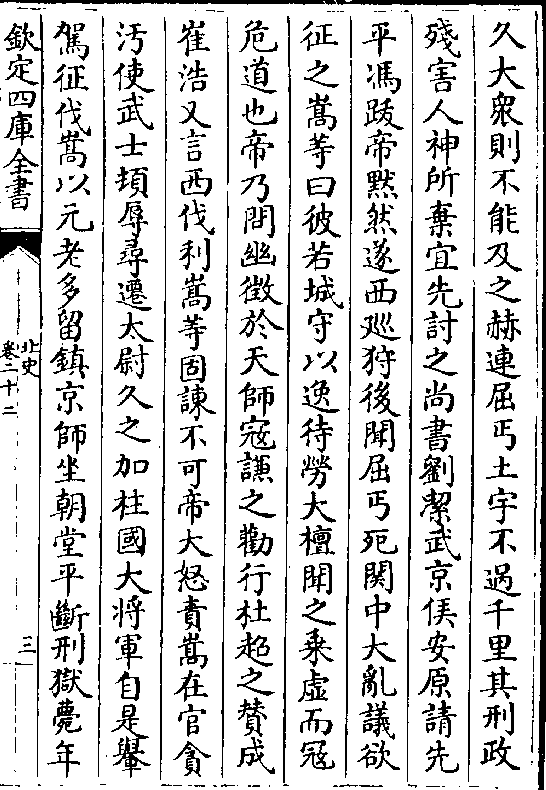 久大衆則不能及之赫連屈丐土宇不過千里其刑政
殘害人神所棄宜先討之尚書劉潔武京侯安原請先
平馮跋帝黙然遂西廵狩後聞屈丐死関中大亂議欲
征之嵩等曰彼若城守以逸待勞大檀聞之乗虚而冦
危道也帝乃問幽徴於天師冦謙之勸行杜超之賛成
崔浩又言西伐利嵩等固諫不可帝大怒責嵩在官貪
汚使武士頓辱尋遷太尉久之加柱國大将軍自是轝
駕征伐嵩以元老多留鎮京師坐朝堂平斷刑獄薨年
欽定四庫全書
北史
卷二十二
三